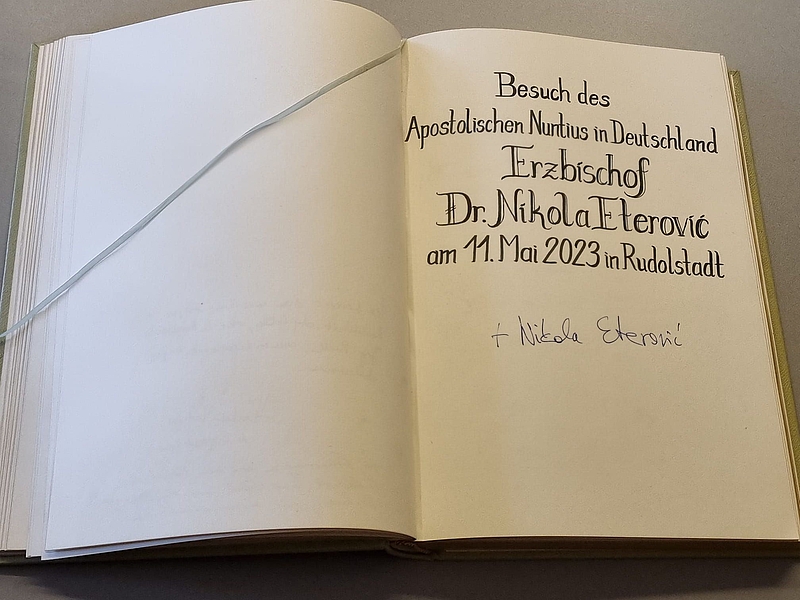 Besuch des
Apostolischen Nuntius in Deutschland
Erzbischof
Dr. Nikola Eterović
am 11. Mai 2023 in Rudolstadt
+ Nikola Eterović